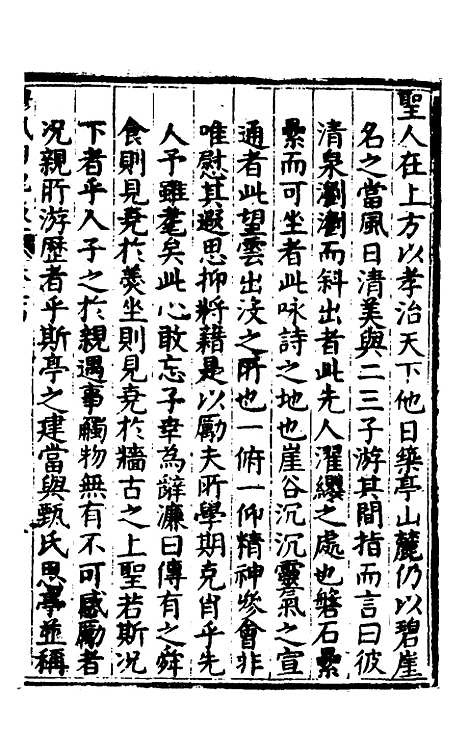 聖人在上方以孝治天下他日築亭山麓仍以碧崖
名之當風日清美與二三子游其間指而言曰彼
清泉瀏瀏而斜出者此先人濯纓之處也磐石纍
纍而可坐者此咏詩之地也崖谷沉沉靈氣之宣
通者此望雲出沒之所也一俯一仰精神參會非
唯慰其遐思抑將藉是以勵夫所學期克肖乎先
人予雖耄矣此心敢忘子幸為辭濂曰傳有之舜
食則見堯於羹坐則見堯於牆古之上聖若斯况
下者乎人子之於親遇事觸物無有不可感勵者
况親所游歷者乎斯亭之建當與甄氏思亭並稱